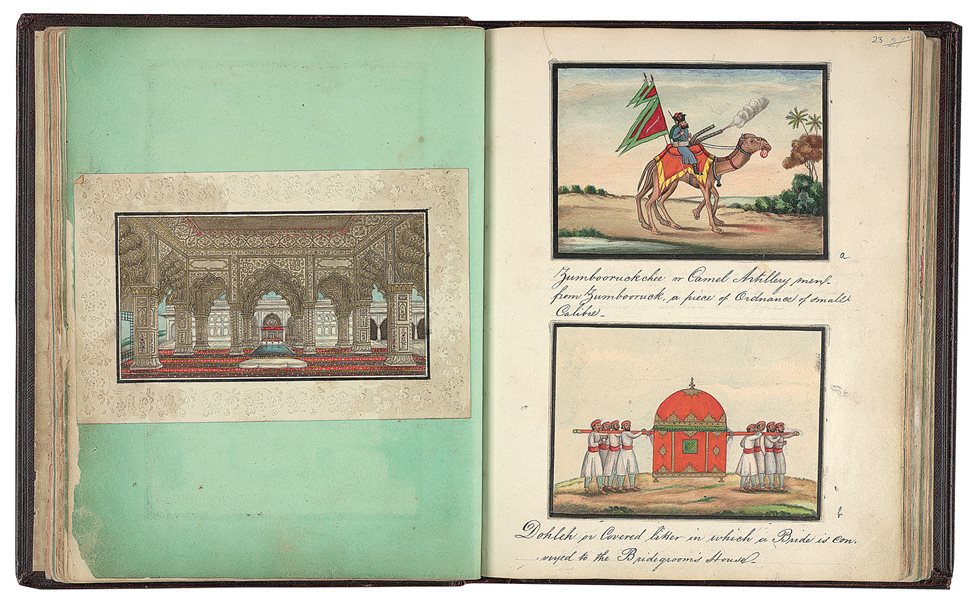 23
a
Zumbooruckchee or Camel Artillery men-
from Zumbooruck, a piece of Ordnance of small
Calibre-
b
Dohleh or Covered litter in which a Bride is con-
-veyed to the Bridegroom's House-